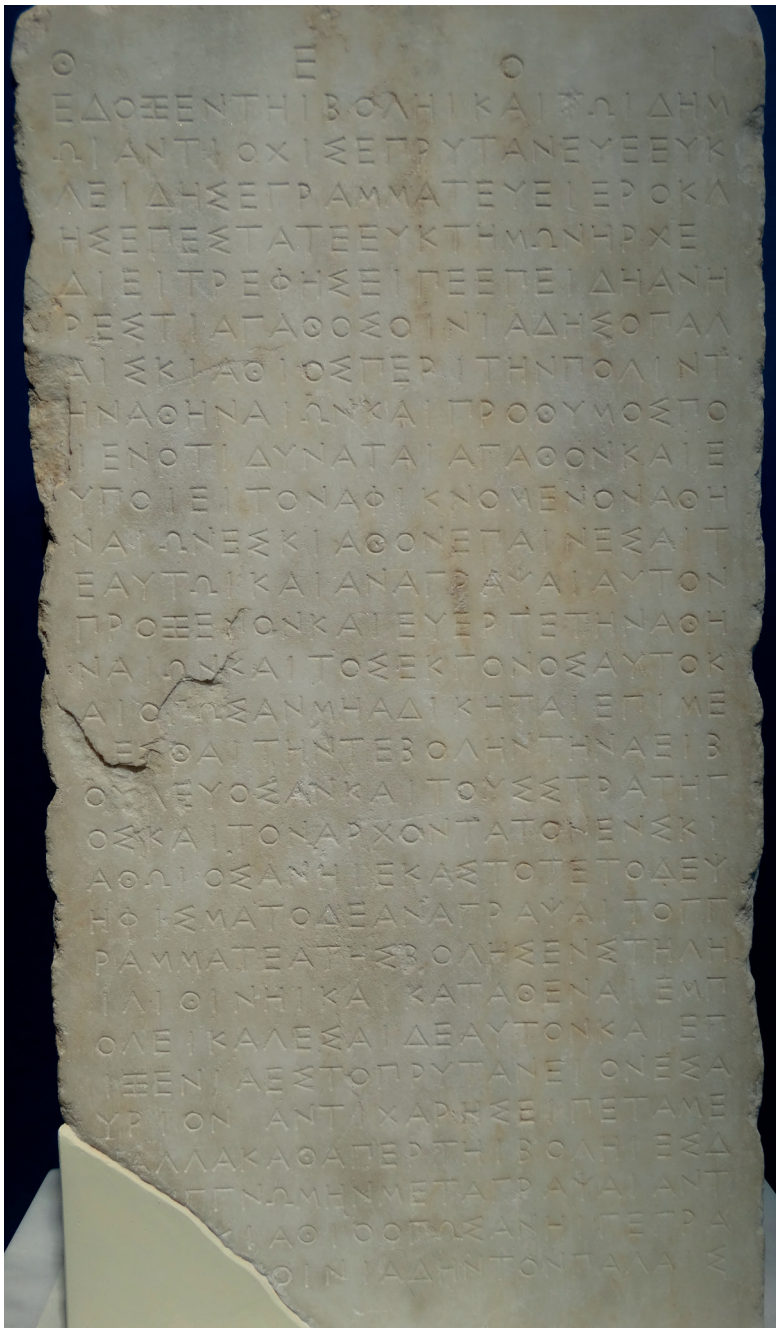 Θ Ε Ο Ι
ΕΔΟΞΕΝΤΗΙΒΟΛΗΙΚΑΙΤΩΙΔΗΜ
ΩΙΑΝΤΙΟΧΙΣΕΠΡΥΤΑΝΕΥΕΕΥΚ
ΛΕΙΔΗΣΕΓΡΑΜΜΑΤΕΥΕΙΕΡΟΚΛ
ΗΣΕΠΕΣΤΑΤΕΕΥΚΤΗΜΩΝΗΡΧΕ
ΔΙΕΙΤΡΕΦΗΣΕΙΠΕΕΠΕΙΔΗΑΝΗ
ΡΕΣΤΙΑΓΑΘΟΣΟΙΝΙΑΔΗΣΟΠΑΛ
ΑΙΣΚΙΑΘΙΟΣΠΕΡΙΤΗΝΠΟΛΙΝΤ
ΗΝΑΘΗΝΑΙΩΝΚΑΙΠΡΟΘΥΜΟΣΠΟ
ΙΕΝΟΤΙΔΥΝΑΤΑΙΑΓΑΘΟΝΚΑΙΕ
ΥΠΟΙΕΙΤΟΝΑΦΙΚΝΟΜΕΝΟΝΑΘΗ
ΝΑΙΩΝΕΣΚΙΑΘΟΝΕΠΑΙΝΕΣΑΙΤ
ΕΑΥΤΩΙΚΑΙΑΝΑΓΡΑΨΑΙΑΥΤΟΝ
ΠΡΟΞΕΝΟΝΚΑΙΕΥΕΡΓΕΤΗΝΑΘΗ
ΝΑΙΩΝΚΑΙΤΟΣΕΚΓΟΝΟΣΑΥΤΟΚ
ΑΙΟΠΩΣΑΝΜΗΑΔΙΚΗΤΑΙΕΠΙΜΕ
ΛΕΣΘΑΙΤΗΝΤΕΒΟΛΗΝΤΗΝΑΕΙΒ
ΟΥΛΕΥΟΣΑΝΚΑΙΤΟΥΣΣΤΡΑΤΗΓ
ΟΣΚΑΙΤΟΝΑΡΧΟΝΤΑΤΟΝΕΝΣΚΙ
ΑΘΩΙΟΣΑΝΗΙΕΚΑΣΤΟΤΕΤΟΔΕΨ
ΗΦΙΣΜΑΤΟΔΕΑΝΑΓΡΑΨΑΙΤΟΓΓ
ΡΑΜΜΑΤΕΑΤΗΣΒΟΛΗΣΕΝΣΤΗΛΗ
ΙΛΙΘΙΝΗΙΚΑΙΚΑΤΑΘΕΝΑΙΕΜΠ
ΟΛΕΙΚΑΛΕΣΑΙΔΕΑΥΤΟΝΚΑΙΕΠ
ΙΞΕΝΙΑΕΣΤΟΠΡΥΤΑΝΕΙΟΝΕΣΑ
ΥΡΙΟΝΑΝΤΙΧΑΡΗΣΕΙΠΕΤΑΜΕ
ΑΛΛΑΚΑΘΑΠΕΡΤΗΙΒΟΛΗΙΕΣΔ
ΓΝΩΜΗΝΜΕΤΑΓΡΑΨΑΙΑΝΤ
ΚΙΑΘΙΟΟΠΩΣΑΝΗΙΓΕΓΡΑ
ΟΙΝΙΑΔΗΝΤΟΝΠΑΛΑΙΣ